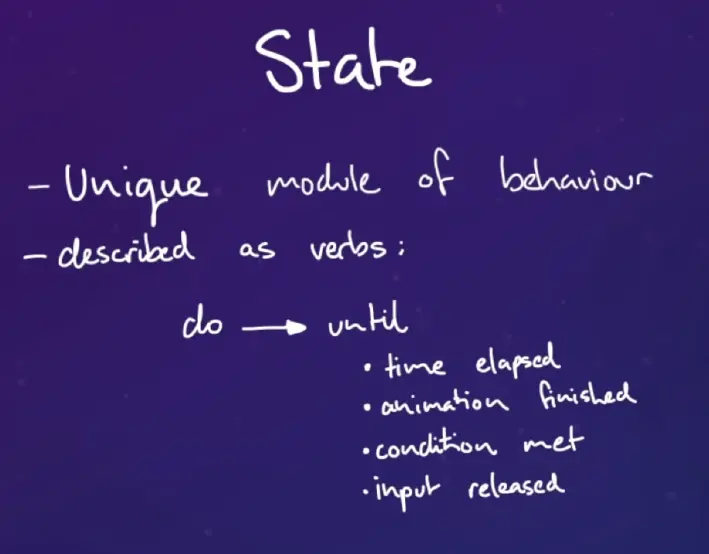 State
- Unique module of behaviour
- described as verbs:
do → until
• time elapsed
• animation finished
• condition met
• input released